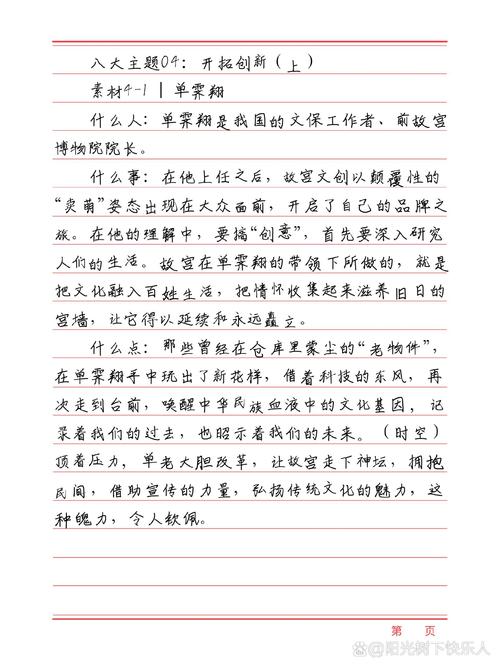 八大主题04：开拓创新（上）
素材4-1｜单霁翔
什么人：单霁翔是我国的文保工作者、前故宫
博物院院长。
什么事：在他上任之后，故宫文创以颠覆性的
“卖萌”姿态出现在大众面前，开启了自己的品牌之
旅。在他的理解中，要搞“创意”，首先要深入研究
人们的生活。故宫在单霁翔的带领下所做的，就是
把文化融入百姓生活，把情怀收集起来滋养旧日的
宫墙，让它得以延续和永远矗立。
什么点：那些曾经在仓库里蒙尘的“老物件”，
在单霁翔手中玩出了新花样，借着科技的东风，再
次走到台前，唤醒中华民族血液中的文化基因，记
录着我们的过去，也昭示着我们的未来。（时空）
顶着压力，单老大胆改革，让故宫走下神坛，拥抱
民间，借助宣传的力量，弘扬传统文化的魅力，这
种魄力，令人钦佩。
第 页
@阳光树下快乐人